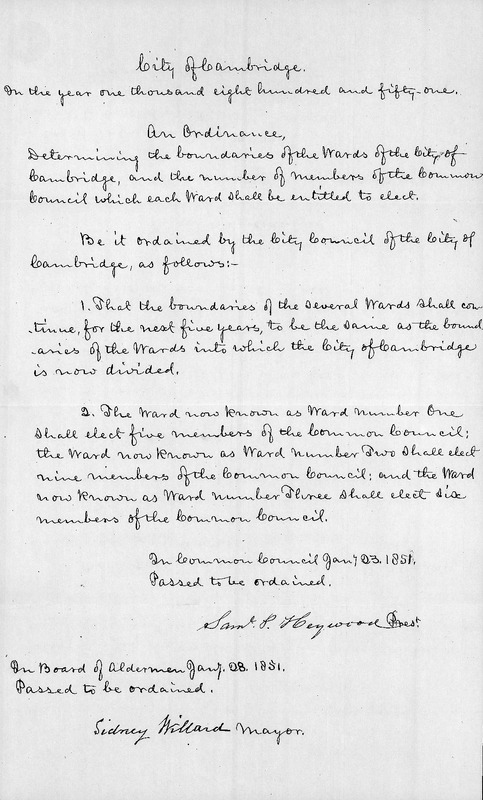 City of Cambridge.
In the year one thousand eight hundred and fifty-one.
An Ordinance,
Determining the boundaries of the Wards of the City of
Cambridge, and the number of members of the Common
Council which each Ward shall be entitled to elect.
Be it ordained by the City Council of the City of
Cambridge, as follows:-
1. That the boundaries of the several Wards shall con-
-tinue, for the next five years, to be the same as the bound
-aries of the Wards into which the City of Cambridge
is now divided.
2. The Ward now known as Ward number One
shall elect five members of the Common Council;
the Ward now known as Ward number Two shall elect
nine members of the Common Council; and the Ward
now known as Ward number Three shall elect six
members of the Common Council.
In Common Council Jany 23. 1851.
Passed to be ordained.
Saml. P. Heywood Prest.
In Board of Aldermen Jany. 28. 1851.
Passed to be ordained.
Sidney Willard Mayor.